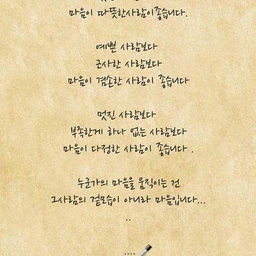 마음이 따뜻한사람이좋습니다.
예쁜 사람보다
근사한 사람보다
마음이 겸손한 사람이 좋습니다
멋진 사람보다
부족한게 하나 없는 사람보다
마음이 다정한 사람이 좋습니다 .
누군가의 마음을 움직이는 건
그사람의 겉모습이 아니라 마음입니다...
..
....